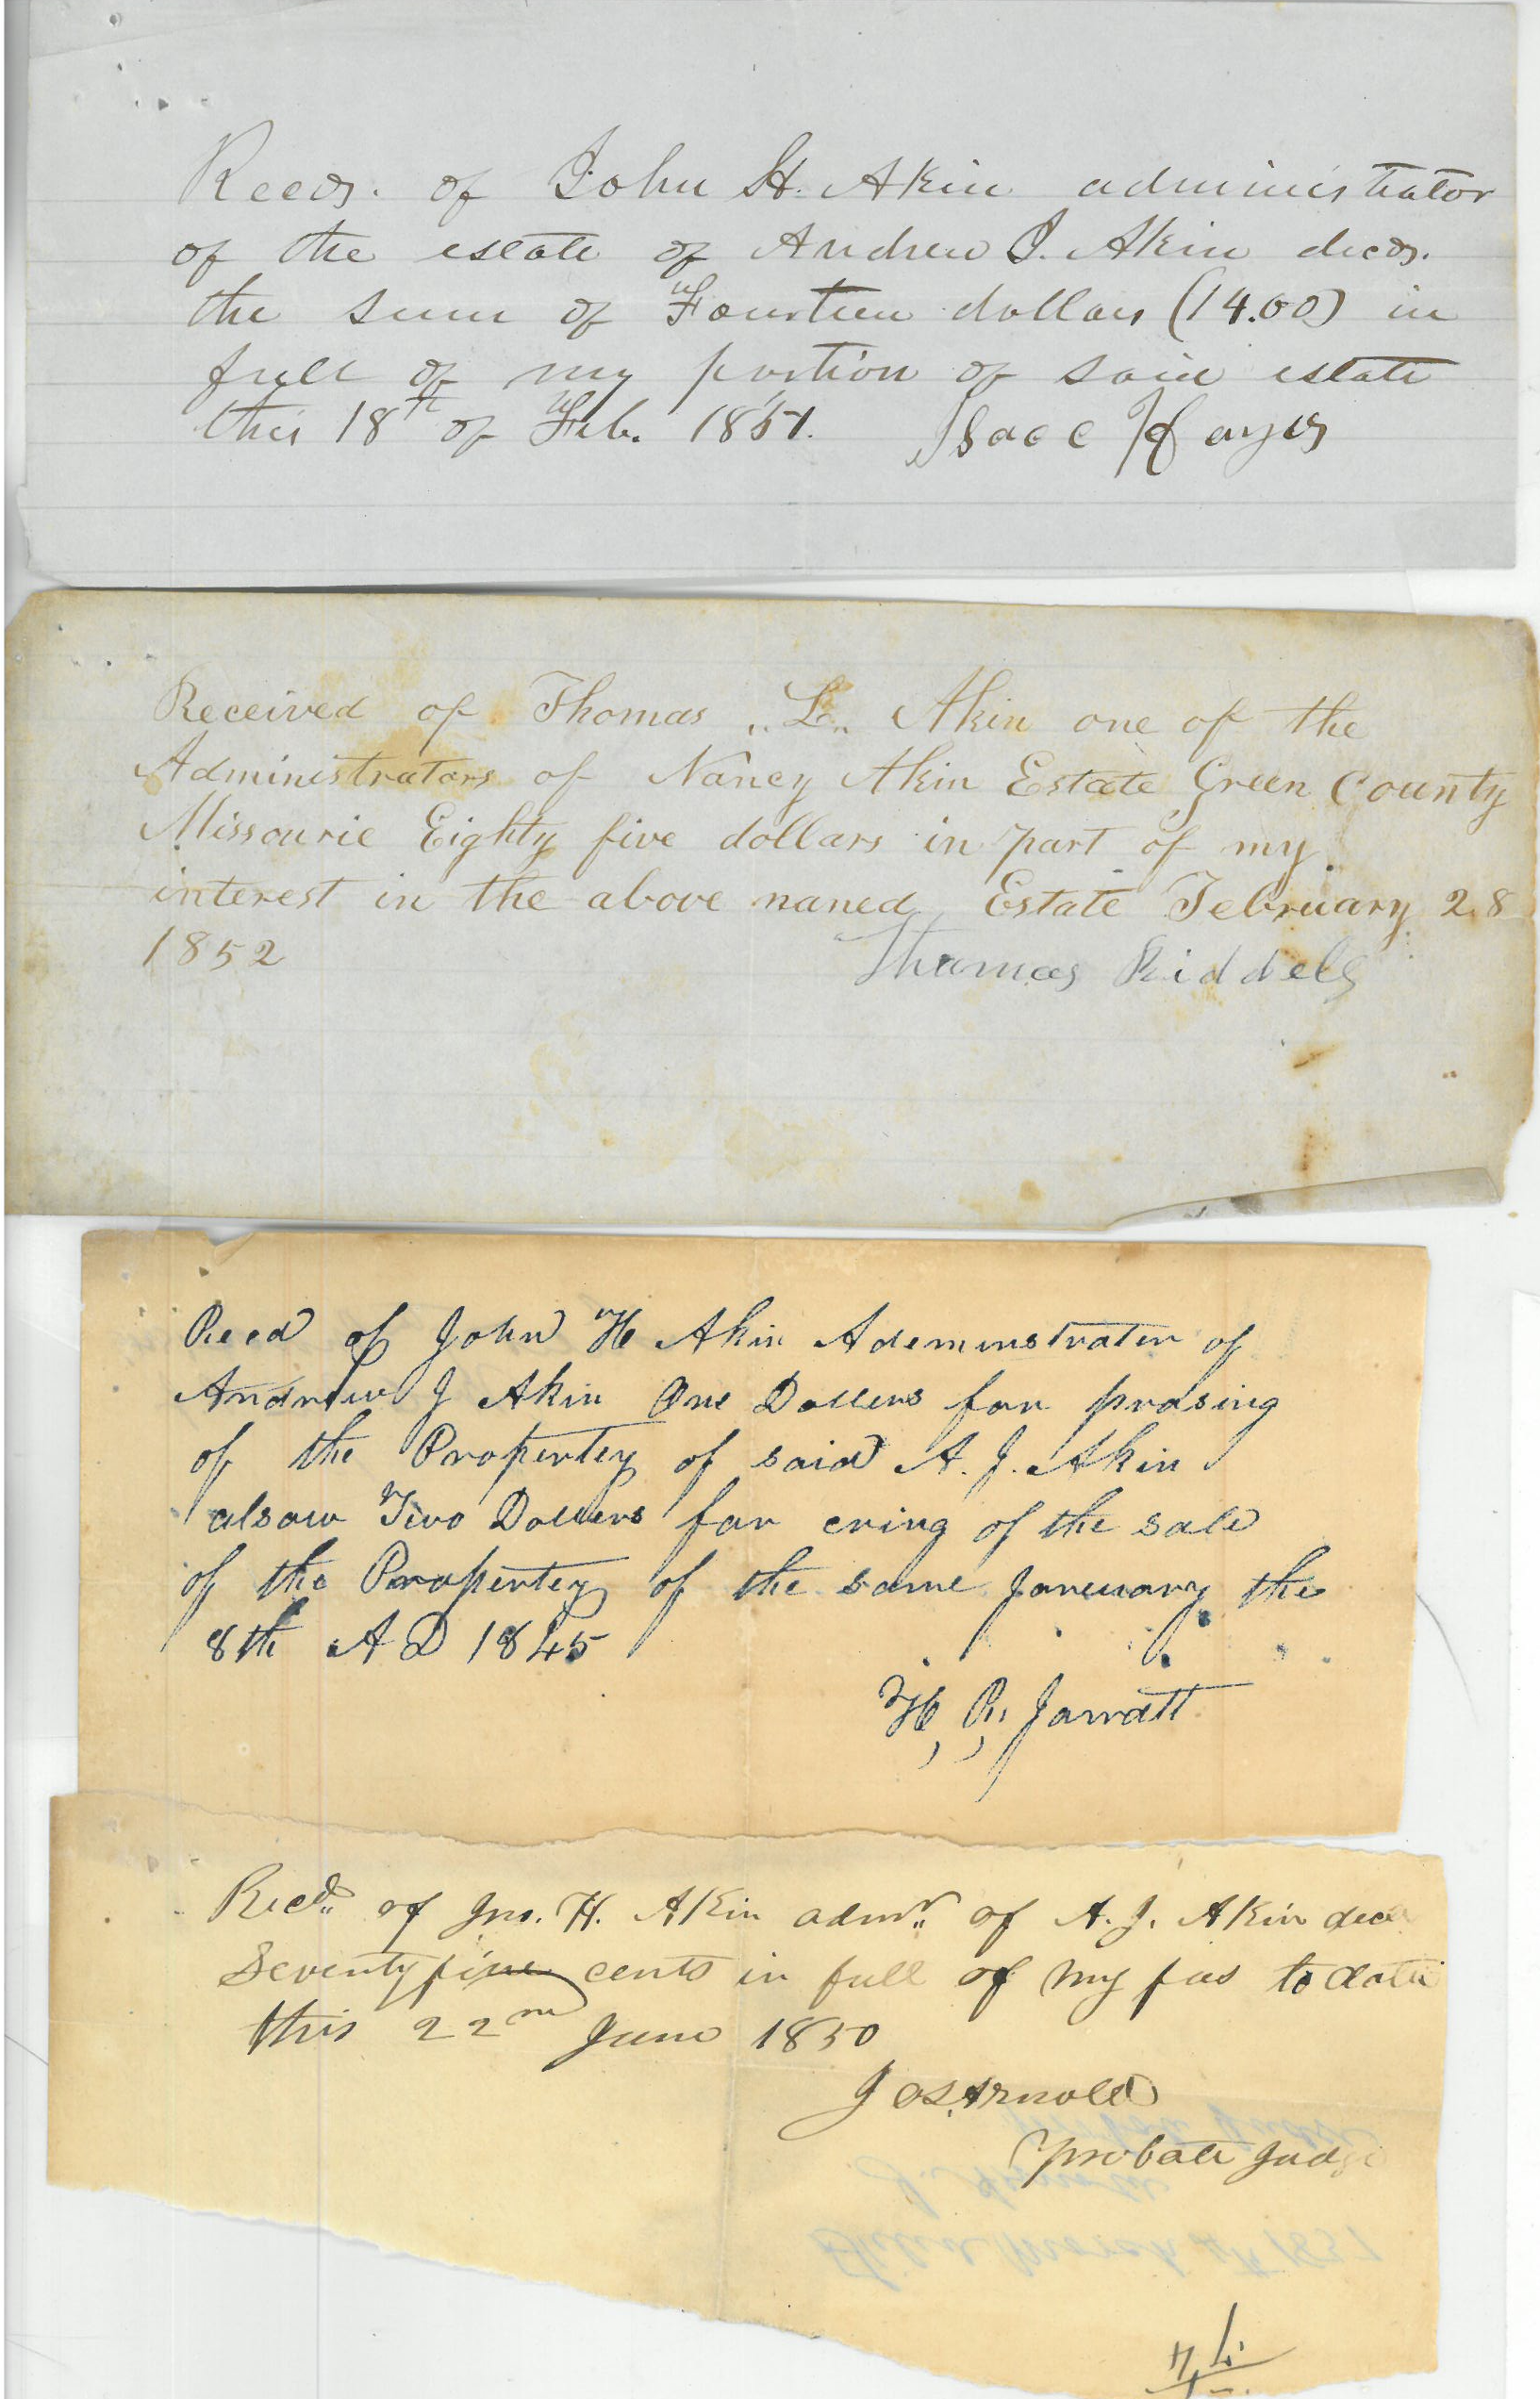 Recd. of John H. Akin administrator
of the estate of Andrew J. Akin decd.
the sum of Fourteen dollars (14.00) in
full of my portion of said estate
this 18th of Feb. 1851. Isaac Hayes
Received of Thomas "L" Akin one of the
Administrators of Nancy Akin Estate Green County
Missourie Eighty five dollars in part of my
interest in the above naned Estate February 28
1852 Thomas Riddels
Recd of John H Akin Ademinstrater of
Andrew J Akin One Dollers for prasing
of the Propertey of said A. J. Akin
alsow Two Dollers for cring of the sale
of the Propertey of the same January the
8th A D 1845
H, R, Jarratt
Recd. of Jno. H. Akin admr. of A. J. Akin decd
Seventy five cents in full of my fees to date
this 22nd June 1850
Jos. Arnold
Probate Judge
J. Arnold
Filed March 4th 1851